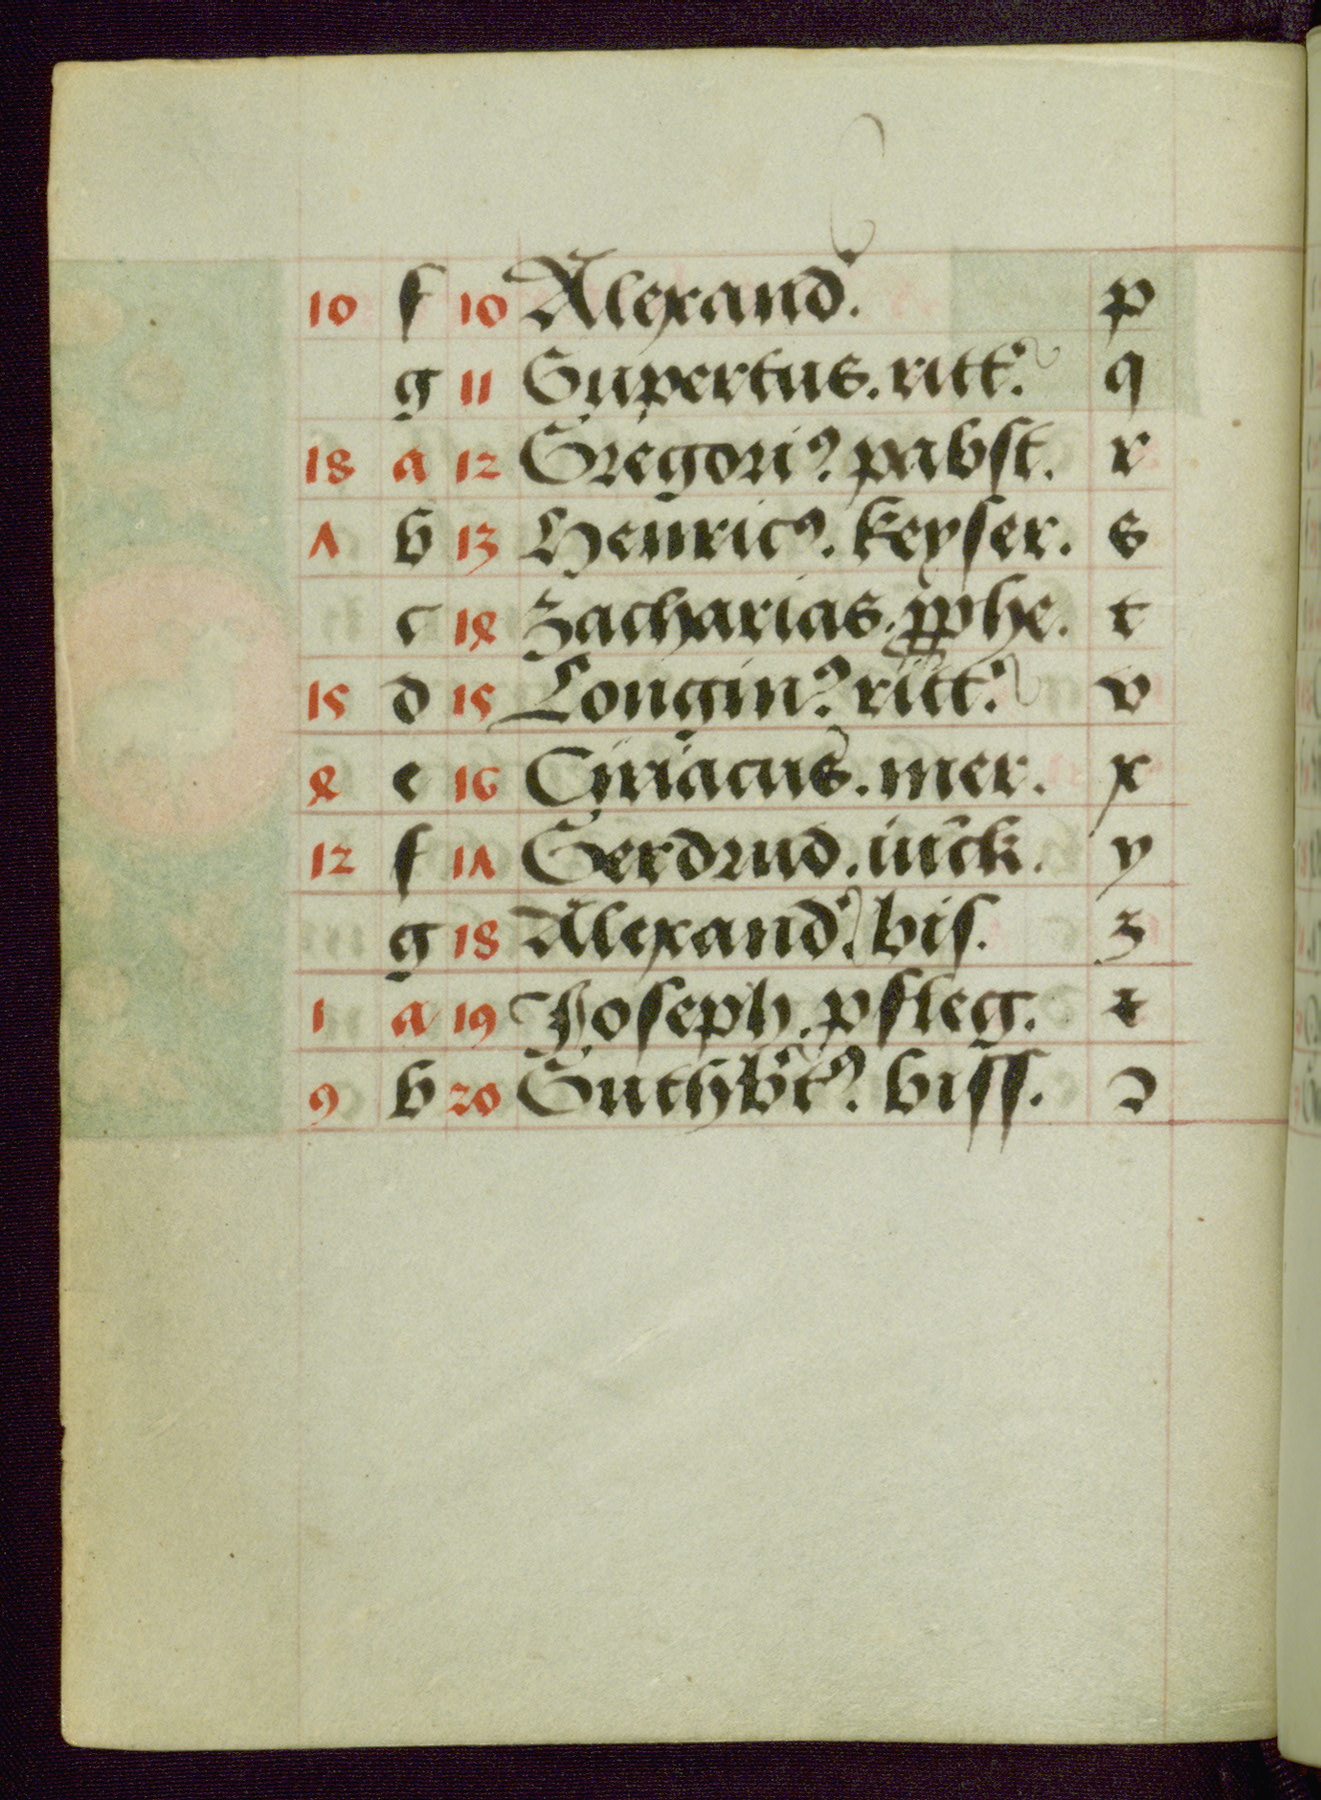 10 f 10 Alexand. p
g 11 Gupertus. ritt. q
18 a 12 Gregori9 pabst. r
7 b 13 Henric9. keyser. s
c 14 Zacharias. pphe. t
15 d 15 Longin9 ritt. v
4 e 16 Ciriacus. mer. x
12 f 17 Gerdrud. iūck. y
g 18 Alexand. bis. z
1 a 19 Joseph. pfleg. ꝛ
9 b 20 Guthbt9. biss. ɔ